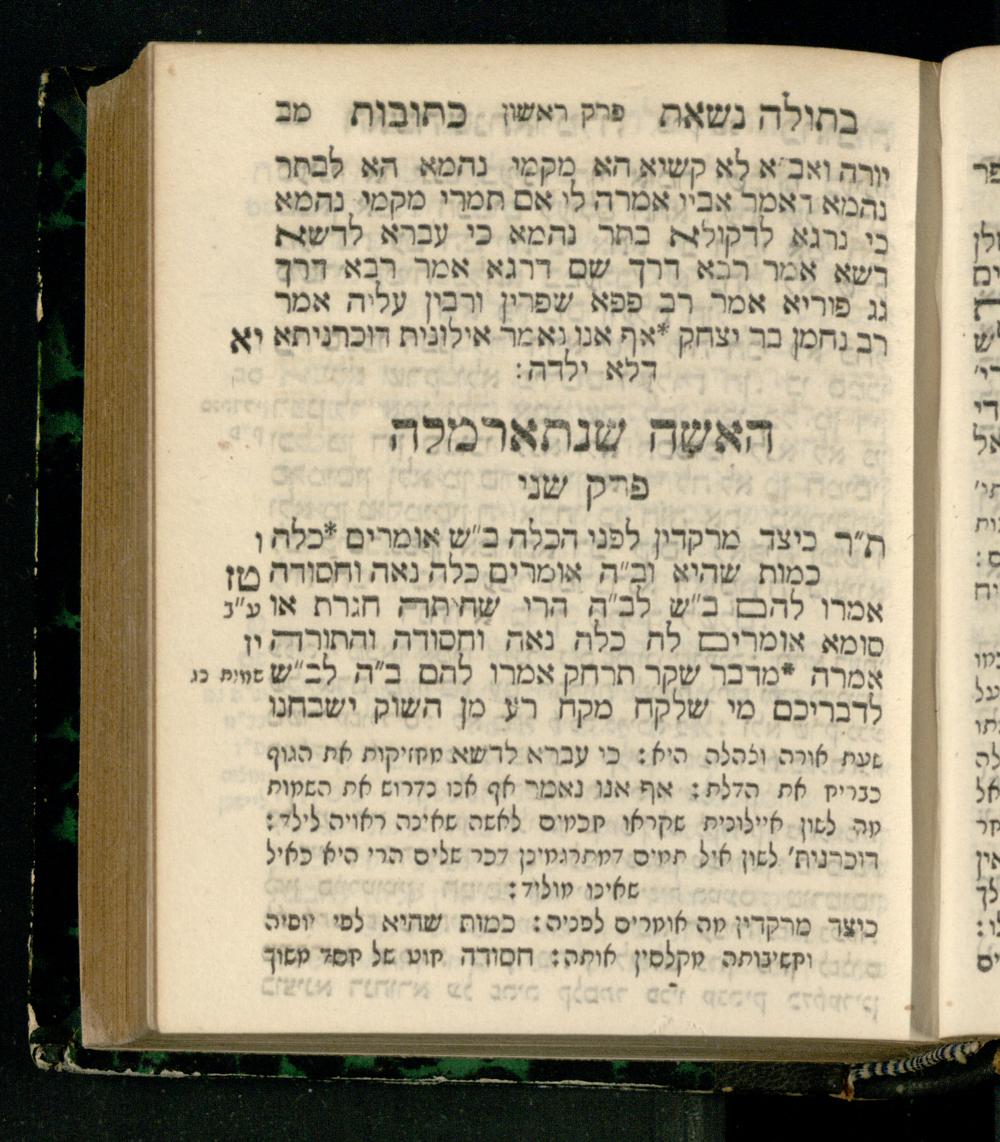 בתולה נשאת פרק ראשון כתובות מב
יורה ואב״א לא קשיא הא מקמי נהמא הא לבתר
נהמא דאמר אביי אמרה לי אם תמרי מקמי נהמא
כי נרגא לדקולא בתר נהמא כי עברא לדשא
דשא אמר רבא דרך שם דרגא אמר רבא דרך
גג פוריא אמר רב פפא שפרין ורבין עליה אמר
רב נחמן בר יצחק *אף אנו נאמר אילונית דוכרניתא יא
דלא ילדה:
האשה שנתארמלה
פרק שני
ת״ר כיצד מרקדין לפני הכלה ב״ש אומרים *כלה ו
כמות שהיא וב״ה אומרים כלה נאה וחסודה טז
אמרו להם ב״ש לב״ה הרי שהיתה חגרת או ע״ב
סומא אומרים לה כלה נאה וחסודה והתורה יז
אמרה *מדבר שקר תרחק אמרו להם ב״ה לב״ש שמות כג
לדבריכם מי שלקח מקח רע מן השוק ישבחנו
שעת אורה וכהלה היא: כי עברא לדשא מחזיקות את הגוף
כבריח את הדלת: אף אנו נאמר אף אנו נדרוש את השמות
מה לשון איילונית שקראו חכמים לאשה שאינה ראויה לילד:
דוכרנית' לשון איל תמים דמתרגמינן דכר שלים הרי היא כאיל
שאינו מוליד:
כיצד מרקדין מה אומרים לפניה: כמות שהיא לפי יופיה
וחשיבותה מקלסין אותה: חסודה חוט של חסד משוך